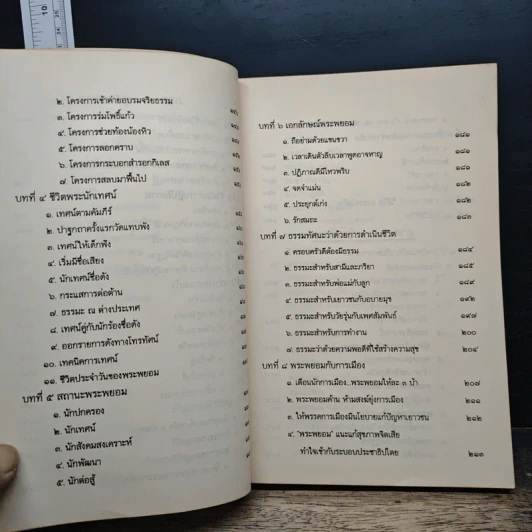 ๒. โครงการเข้าค่ายอบรมจริยธรรม
๓. โครงการร่มโพธิ์แก้ว
๔. โครงการช่วยท้องน้องหิว
๕. โครงการลอกคราบ
๖. โครงการกระบอกสำรอกกิเลส
๗. โครงการสลบมาฟื้นไป
บทที่ ๔ ชีวิตพระนักเทศน์
๑. เทศน์ตามคัมภีร์
๒. ปาฐกถาครั้งแรกวัดแทบพัง
๓. เทศน์ให้เด็กฟัง
๔. เริ่มมีชื่อเสียง
๕. นักเทศน์ชื่อดัง
๖. กระแสการต่อต้าน
๗. ธรรมะ ณ ต่างประเทศ
๘. เทศน์คู่กับนักร้องชื่อดัง
๙. ออกรายการดังทางโทรทัศน์
๑๐. เทคนิคการเทศน์
๑๑. ชีวิตประจำวันของพระพยอม
บทที่ ๕ สถานะพระพยอม
๑. นักปกครอง
๒. นักเทศน์
๓. นักสังคมสงเคราะห์
๔. นักพัฒนา
๕. นักต่อสู้
บทที่ ๖ เอกลักษณ์พระพยอม ๑๘๑
๑. ถือย่ามด้วยแขนขวา ๑๘๑
๒. เวลาเดินตัวลีบเวลาพูดอาจหาญ ๑๘๑
๓. ปฏิภาณดีมีไหวพริบ ๑๘๑
๔. จดจำแม่น ๑๘๒
๕. ประยุกต์เก่ง ๑๘๒
๖. รักสมถะ ๑๘๓
บทที่ ๗ ธรรมทัศนะว่าด้วยการดำเนินชีวิต
๑. ครอบครัวดีต้องมีธรรม ๑๘๔
๒. ธรรมะสำหรับสามีและภริยา ๑๘๕
๓. ธรรมะสำหรับพ่อแม่กับลูก ๑๘๙
๔. ธรรมะสำหรับเยาวชนกับอบายมุข ๑๙๒
๕. ธรรมะสำหรับวัยรุ่นกับเพศสัมพันธ์ ๑๙๗
๖. ธรรมะสำหรับการทำงาน ๒๐๐
๗. ธรรมะว่าด้วยความพอดีที่ใช้สร้างความสุข ๒๐๔
บทที่ ๘ พระพยอมกับการเมือง
๑. เตือนนักการเมือง..พระพยอมให้ละ ๓ บ้า ๒๐๗
๒. พระพยอมค้าน ห้ามสงฆ์ยุ่งการเมือง ๒๑๑
๓. ให้พรรคการเมืองมีนโยบายแก้ปัญหาเยาวชน ๒๑๒
๔. "พระพยอม" แนะแก้สุขภาพจิตเสีย
ทำใจเข้ากับระบอบประชาธิปไตย ๒๑๓